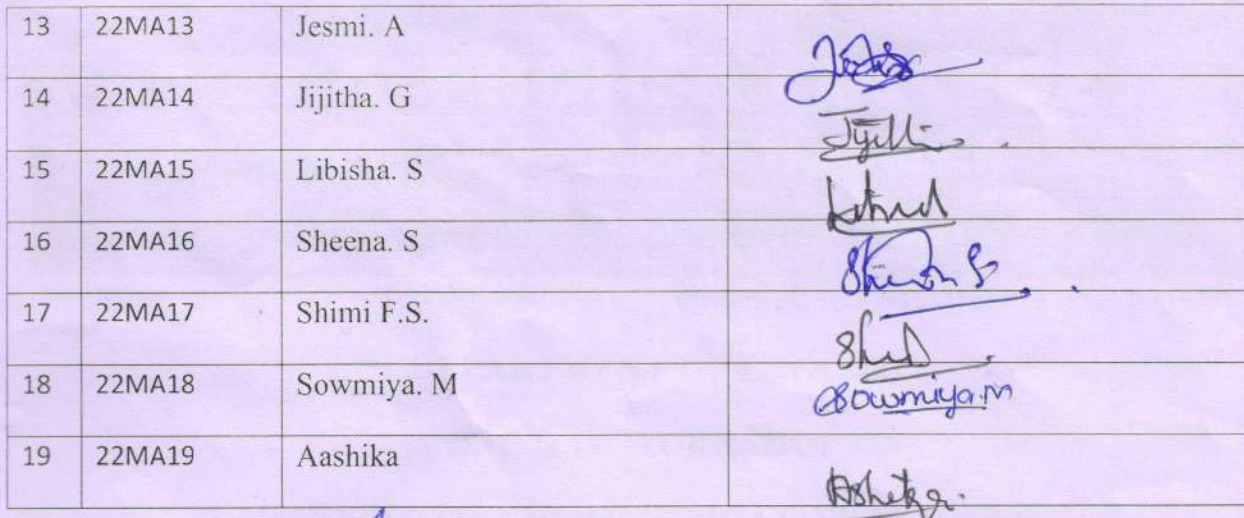 13 22MA13 Jesmi. A
14 22MA14 Jijitha. G
15 22MA15 Libisha. S
16 22MA16 Sheena. S
17 22MA17 Shimi F.S.
18 22MA18 Sowmiya. M Sowmiya.M
19 22MA19 Aashika